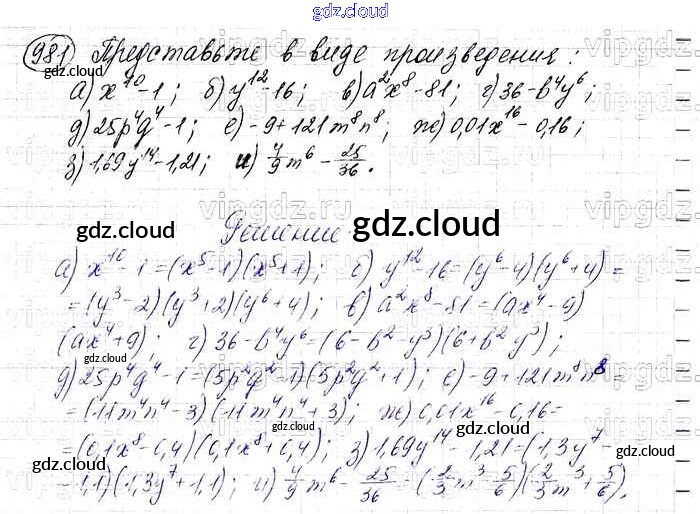 gdz.cloud
981 Представьте в виде произведения:
а) x¹⁰-1; б) y¹²-16; в) a²x⁸-81; г) 36-b⁴y⁶;
д) 25p⁴q⁴-1; е) -9+121m⁸n⁸; ж) 0,01x¹⁶-0,16;
з) 1,69y¹⁴-1,21; и) 4/9 m⁶ - 25/36.
gdz.cloud Решение gdz.cloud
а) x¹⁰-1=(x⁵-1)(x⁵+1); б) y¹²-16=(y⁶-4)(y⁶+4)=
=(y³-2)(y³+2)(y⁶+4); в) a²x⁸-81=(ax⁴-9)
(ax⁴+9); г) 36-b⁴y⁶=(6-b²y³)(6+b²y³);
д) 25p⁴q⁴-1=(5p²q²-1)(5p²q²+1); е) -9+121m⁸n⁸
=(11m⁴n⁴-3)(11m⁴n⁴+3); ж) 0,01x¹⁶-0,16=
=(0,1x⁸-0,4)(0,1x⁸+0,4); з) 1,69y¹⁴-1,21=(1,3y⁷-
-1,1)(1,3y⁷+1,1); и) 4/9 m⁶ - 25/36 = (2/3 m³ - 5/6)(2/3 m³ + 5/6).